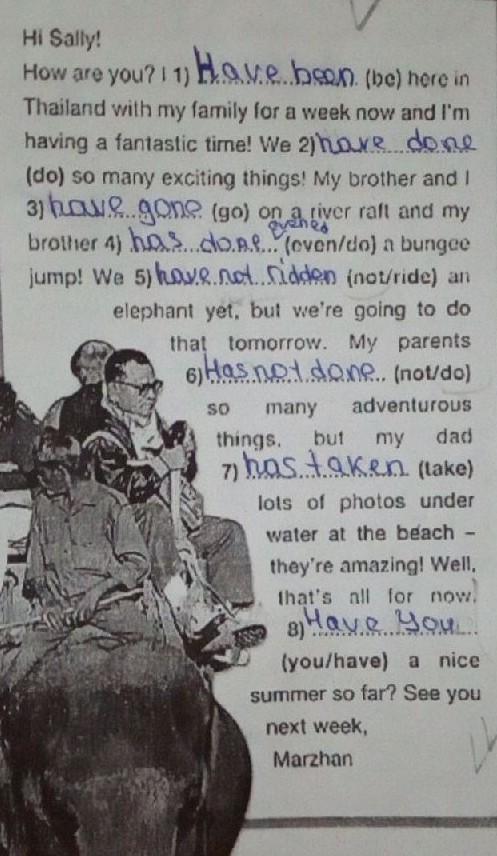 Hi Sally!
How are you? I 1) Have been (be) here in
Thailand with my family for a week now and I'm
having a fantastic time! We 2) have done
(do) so many exciting things! My brother and I
3) have gone (go) on a river raft and my
evened
brother 4) has done (even/do) a bungee
jump! We 5) have not ridden (not/ride) an
elephant yet, but we're going to do
that tomorrow. My parents
6) Has not done (not/do)
so many adventurous
things, but my dad
7) has taken (take)
lots of photos under
water at the beach –
they're amazing! Well,
that's all for now.
8) Have You
(you/have) a nice
summer so far? See you
next week,
Marzhan